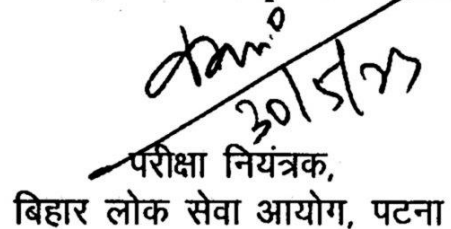 30/5/25
परीक्षा नियंत्रक,
बिहार लोक सेवा आयोग, पटना